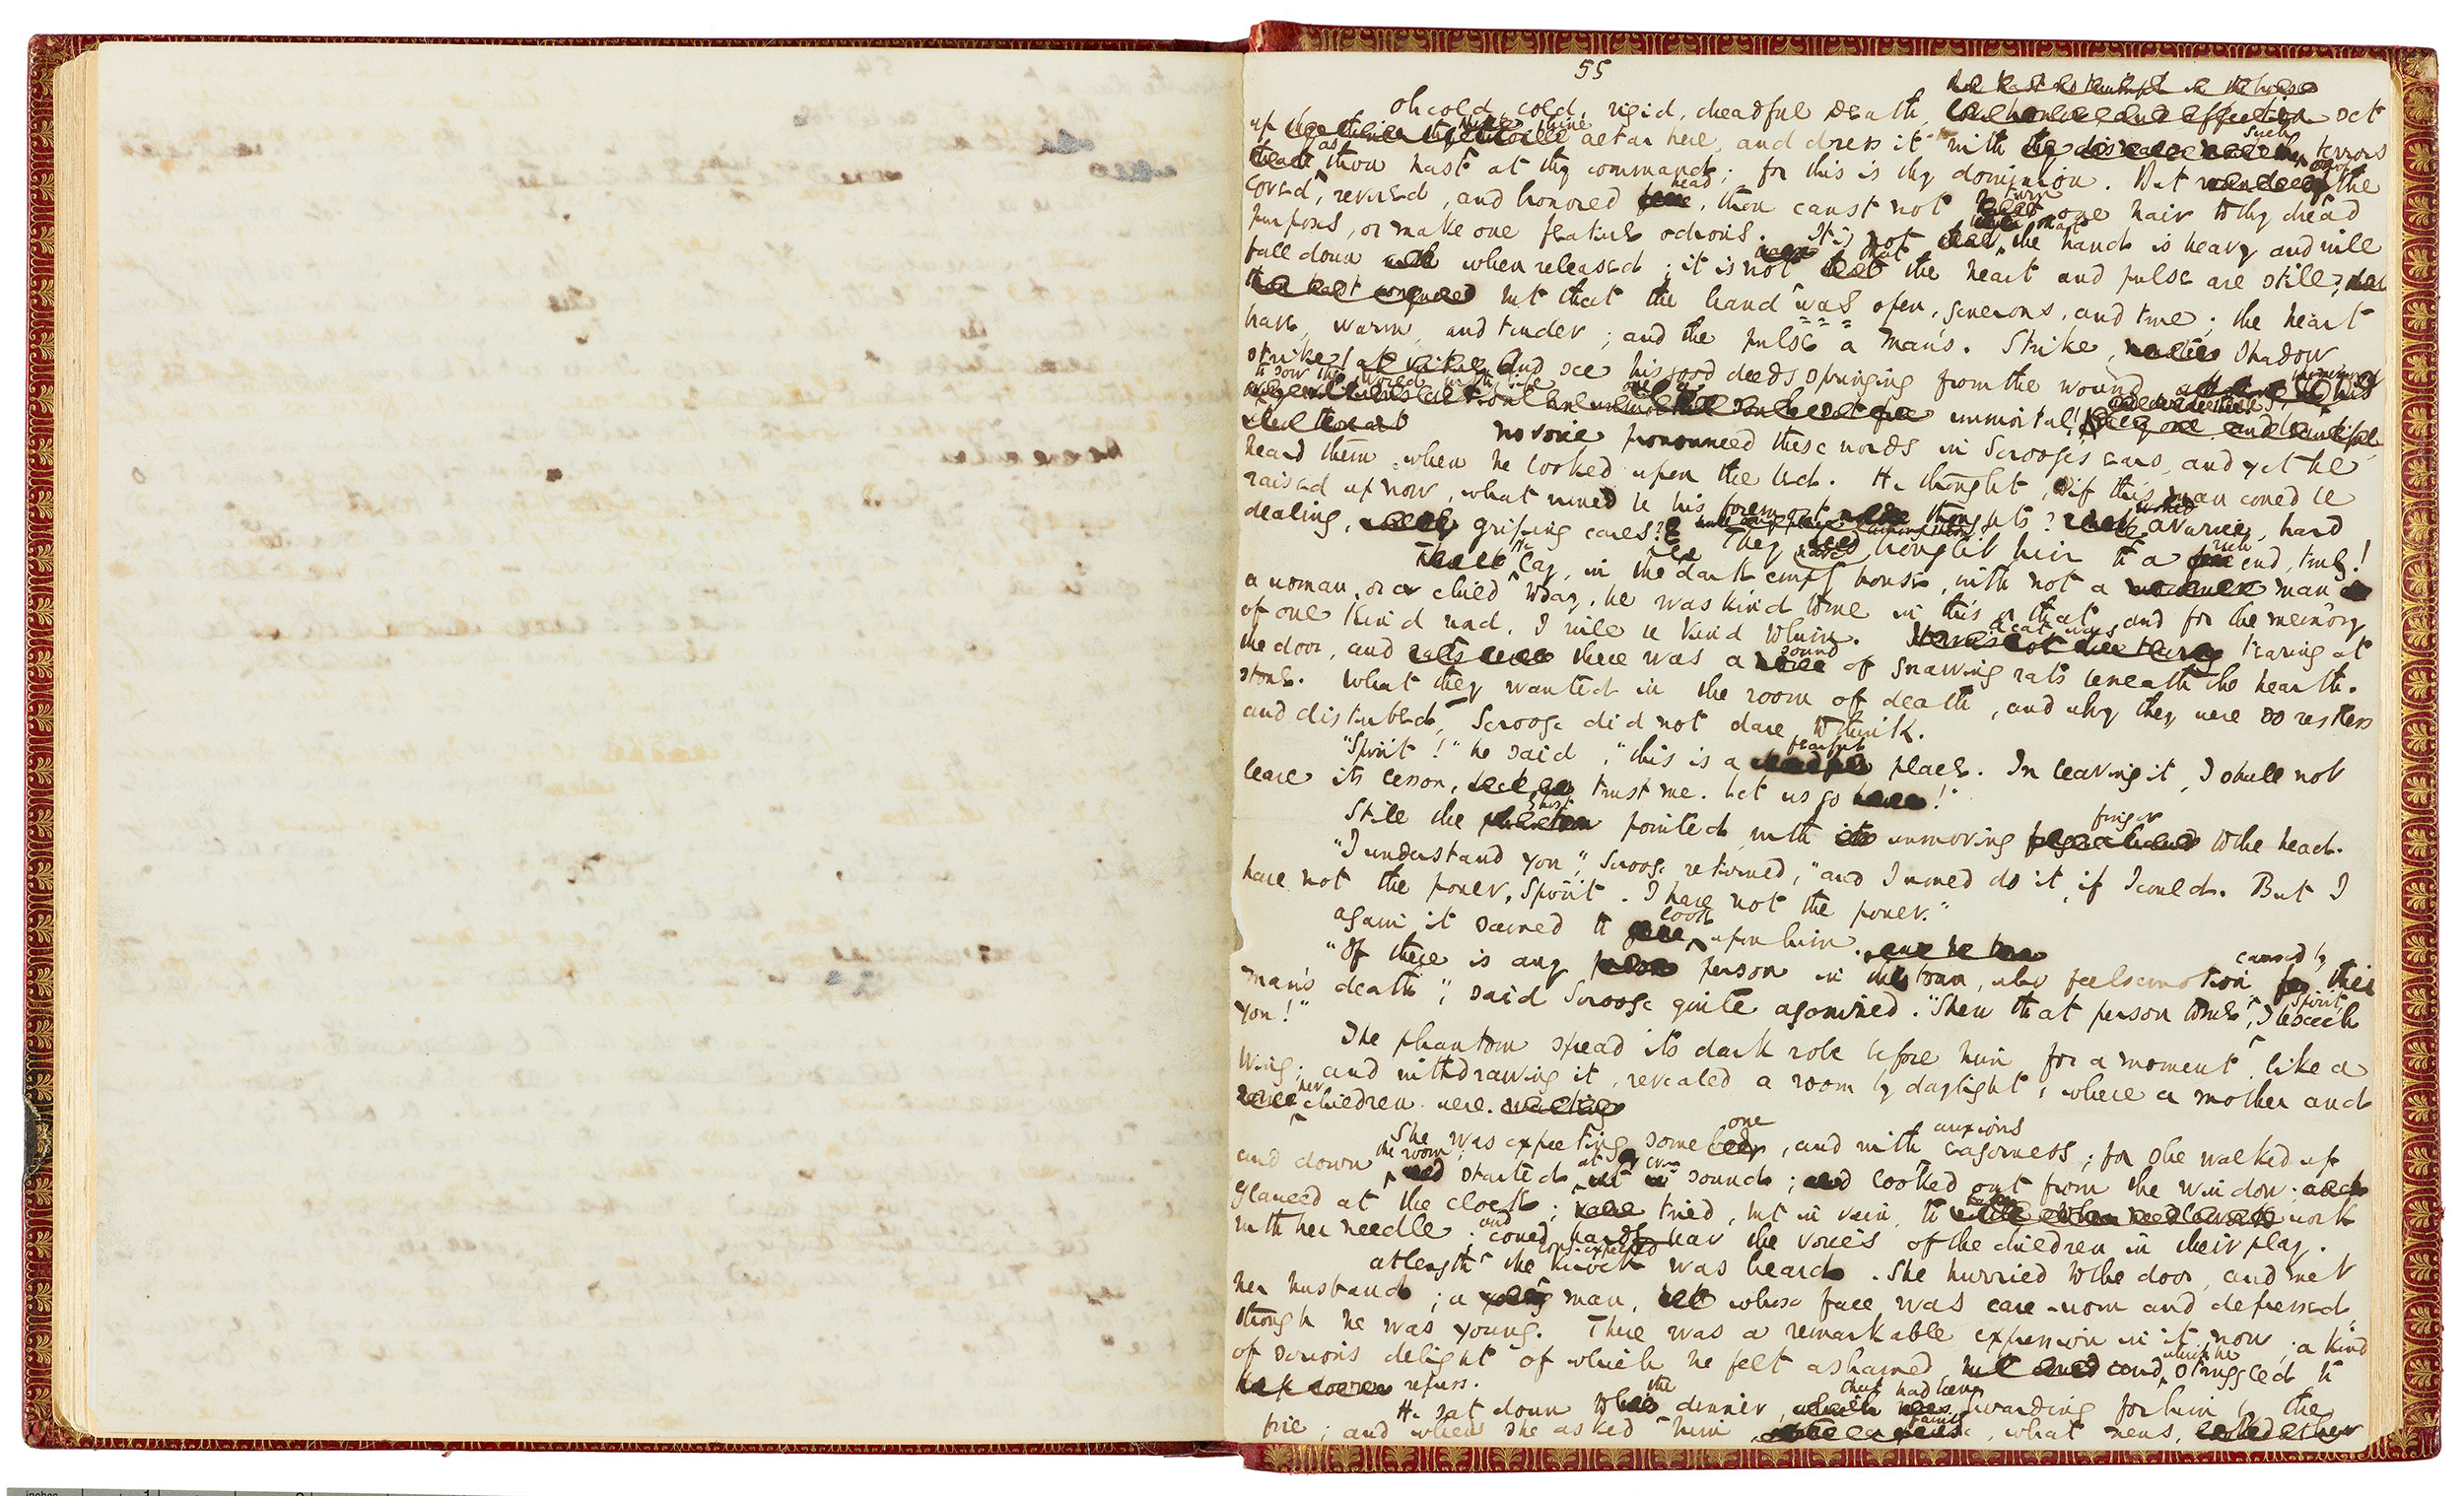 55
Oh cold, cold, rigid, dreadful Death, set
up thine altar here, and dress it with such terrors
as thou hast at thy command; for this is thy dominion. But of the
loved, revered, and honored head, thou canst not turn one hair to thy dread
purposes, or make one feature odious. It is not that the hand is heavy and will
fall down when released; it is not that the heart and pulse are still;
but that the hand was open, generous, and true; the heart
brave, warm, and tender; and the pulse a man's. Strike, Shadow,
strike! And see his good deeds springing from the wound,
to sow the world with life
immortal!
No voice pronounced these words in Scrooge's ears, and yet he
heard them when he looked upon the bed. He thought, if this man could be
raised up now, what would be his foremost thoughts? Avarice, hard
dealing, griping cares? They have brought him to a rich end, truly!
He lay, in the dark empty house, with not a man
a woman, or a child to say, he was kind to me in this or that, and for the memory
of one kind word, I will be kind to him. A cat was tearing at
the door, and there was a sound of gnawing rats beneath the hearth-
stone. What they wanted in the room of death, and why they were so restless
and disturbed, Scrooge did not dare to think.
"Spirit!" he said, "this is a fearful place. In leaving it, I shall not
leave its lesson, trust me. Let us go!"
Still the Ghost pointed with unmoving finger to the head.
"I understand you," Scrooge returned, "and I would do it, if I could. But I
have not the power, Spirit. I have not the power."
Again it seemed to look upon him.
"If there is any person in the town, who feels emotion caused by this
man's death", said Scrooge quite agonized. "Show that person to me, Spirit, I beseech
you!"
The phantom spread its dark robe before him for a moment, like a
wing; and withdrawing it, revealed a room by daylight, where a mother and
her children were.
She was expecting some one, and with anxious eagerness; for she walked up
and down the room; started at every sound; looked out from the window;
glanced at the clock; tried, but in vain, to work
with her needle; and could hardly bear the voices of the children in their play.
At length the long-expected knock was heard. She hurried to the door, and met
her husband; a man, whose face was care-worn and depressed,
though he was young. There was a remarkable expression in it now; a kind
of serious delight of which he felt ashamed, and which he struggled to
repress.
He sat down to the dinner that had been hoarding for him by the
fire; and when she asked him faintly, what news,
inches